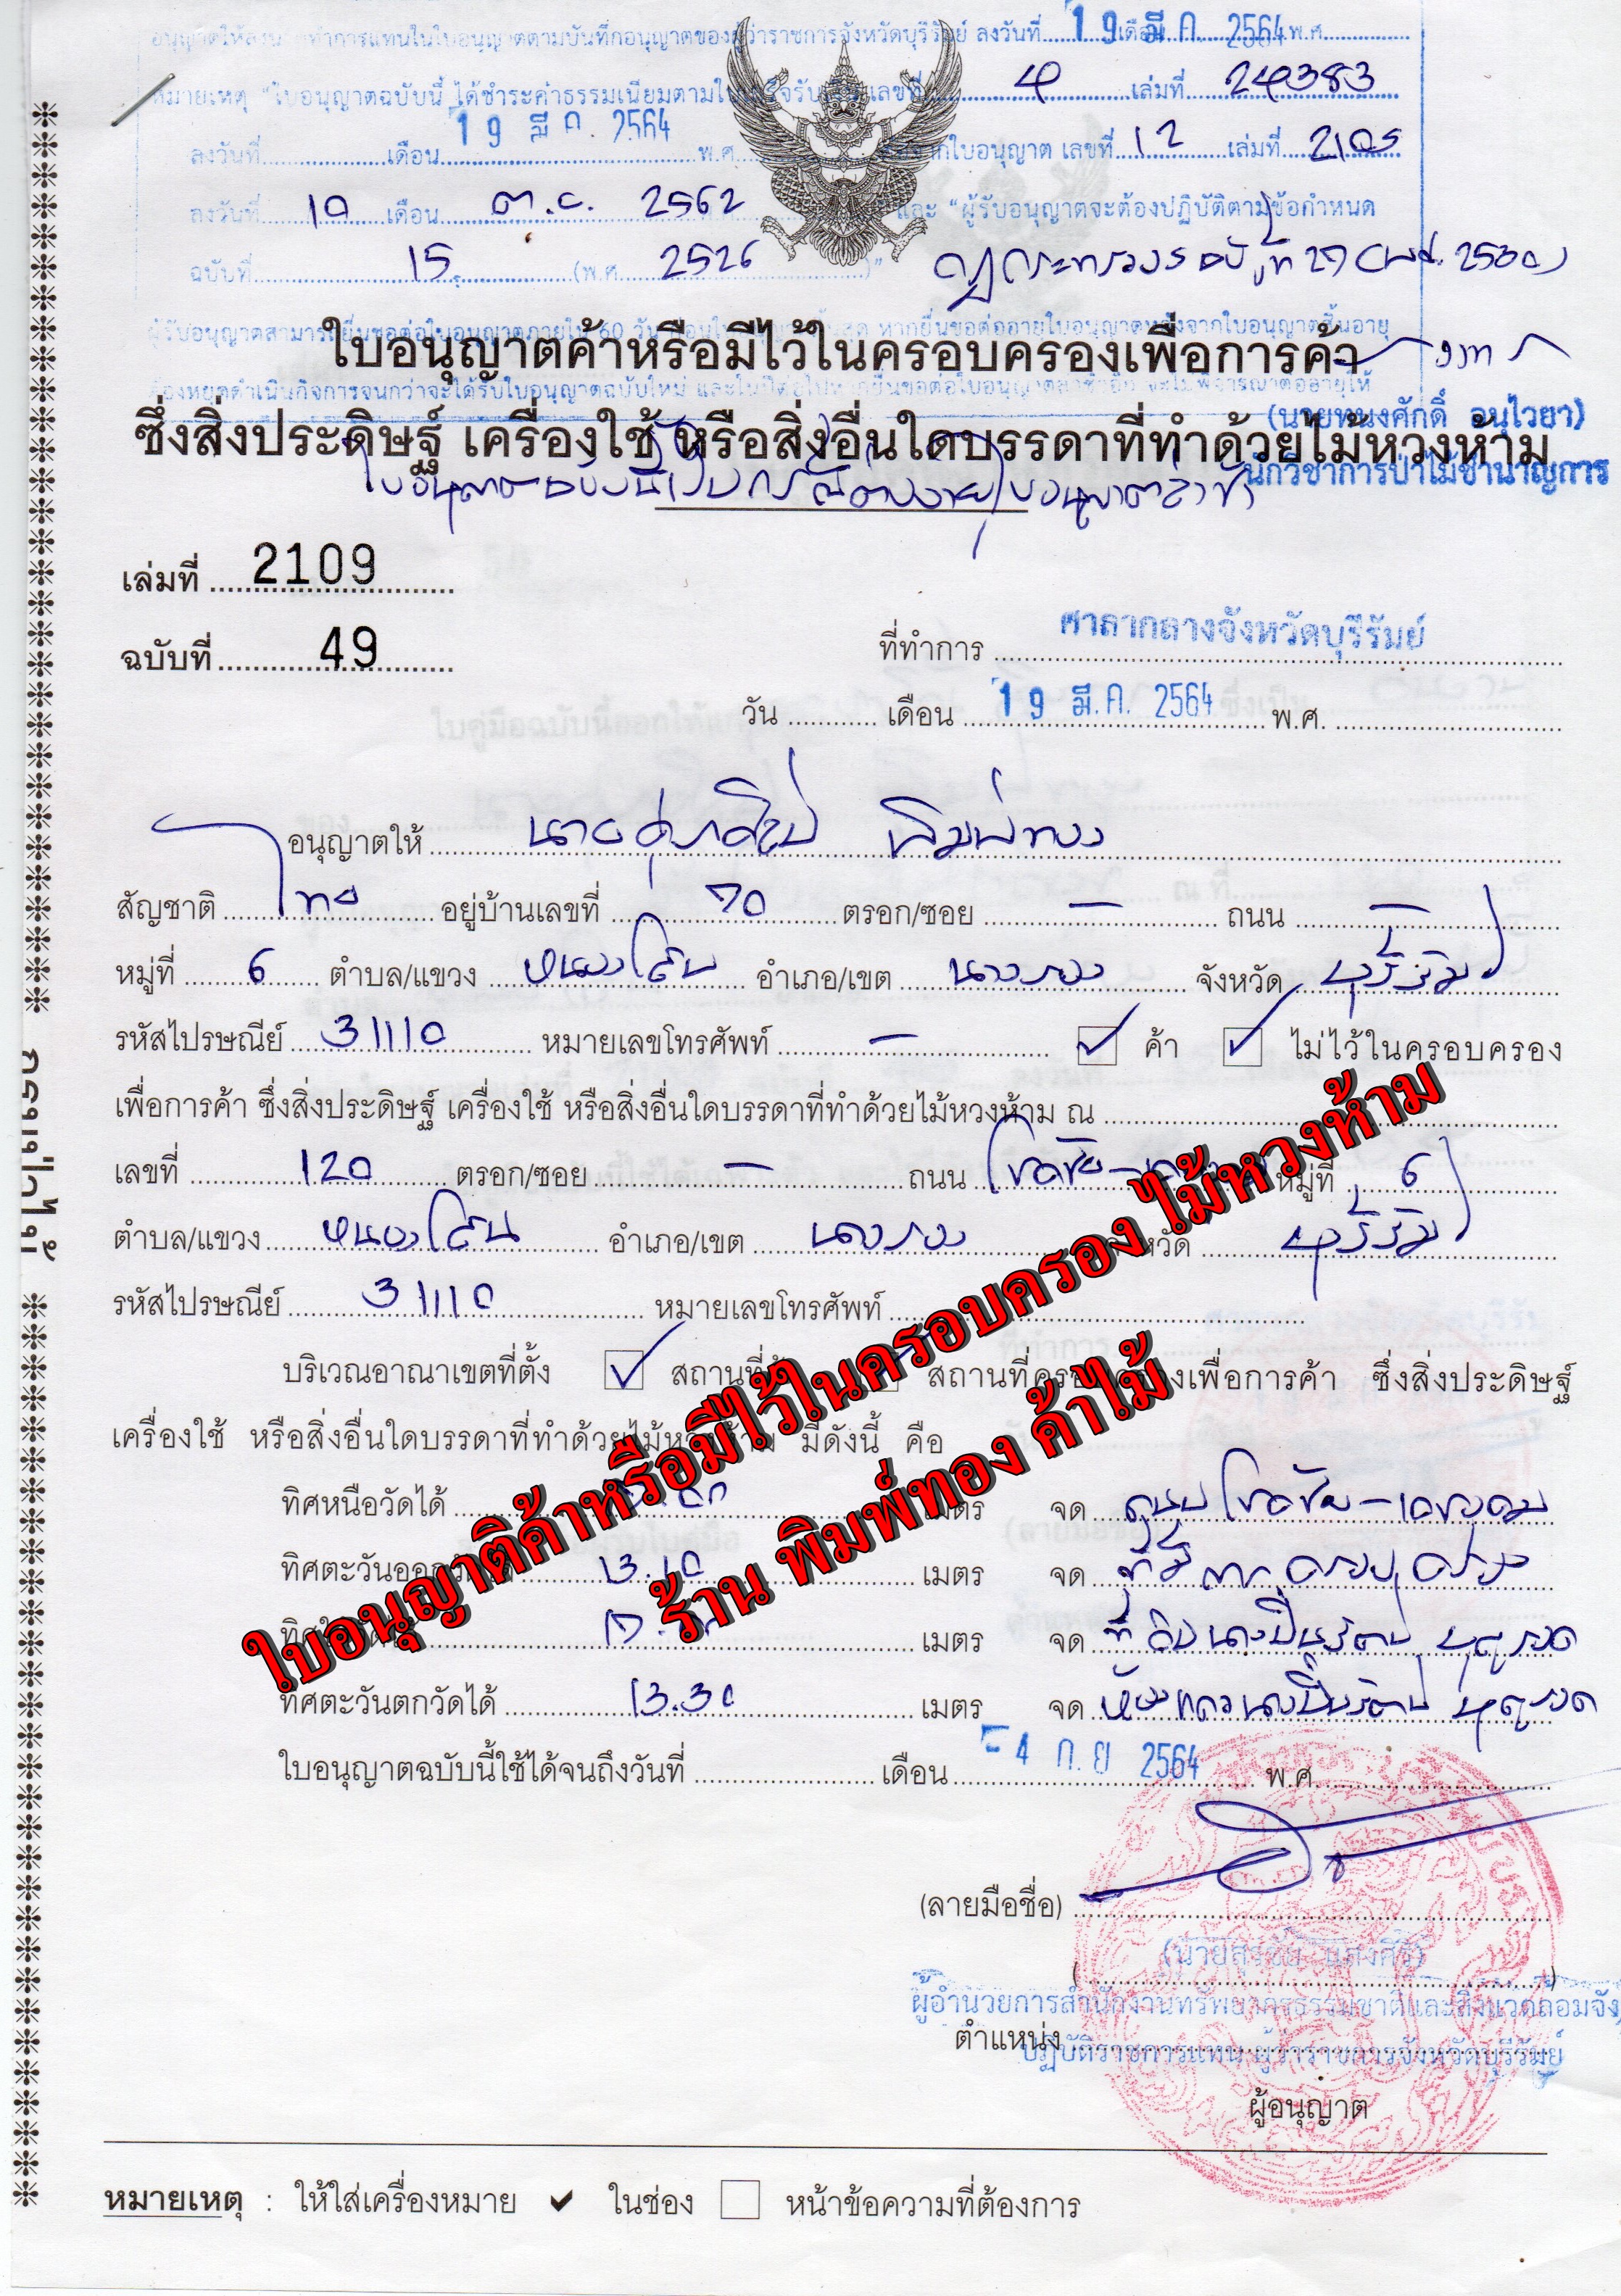 อนุญาตให้ลงนามทำการแทนในใบอนุญาตตามบันทึกอนุญาตของผู้ว่าราชการจังหวัดบุรีรัมย์ ลงวันที่ 19 เดือน มี.ค. 2564 พ.ศ.
หมายเหตุ "ใบอนุญาตฉบับนี้ ได้ชำระค่าธรรมเนียมตามใบเสร็จรับเงิน เลขที่ 4 เล่มที่ 24383
ลงวันที่ เดือน 19 มี.ค. 2564 พ.ศ. ใบอนุญาต เลขที่ 12 เล่มที่ 2105
ลงวันที่ 10 เดือน ต.ค. 2562 และ "ผู้รับอนุญาตจะต้องปฏิบัติตามข้อกำหนด
ฉบับที่ 15 (พ.ศ. 2526 )" กฎกระทรวง ฉบับที่ 27 (พ.ศ. 2530)
ผู้รับอนุญาตสามารถยื่นขอต่อใบอนุญาตภายใน 60 วัน หากยื่นขอต่ออายุใบอนุญาตหลังจากใบอนุญาตสิ้นอายุ
ใบอนุญาตค้าหรือมีไว้ในครอบครองเพื่อการค้า
ต้องหยุดดำเนินกิจการจนกว่าจะได้รับใบอนุญาตฉบับใหม่
(นายทนงศักดิ์ อนุไวยา)
ซึ่งสิ่งประดิษฐ์ เครื่องใช้ หรือสิ่งอื่นใดบรรดาที่ทำด้วยไม้หวงห้าม
นักวิชาการป่าไม้ชำนาญการ
ใบอนุญาตฉบับนี้เป็นกรณีต่ออายุใบอนุญาตล่าช้า
เล่มที่ 2109
ฉบับที่ 49
ที่ทำการ ศาลากลางจังหวัดบุรีรัมย์
วัน เดือน 19 มี.ค. 2564 พ.ศ.
อนุญาตให้ นายศุภศิลป์ พิมพ์ทอง
สัญชาติ ไทย อยู่บ้านเลขที่ 70 ตรอก/ซอย – ถนน –
หมู่ที่ 6 ตำบล/แขวง หนองโสน อำเภอ/เขต นางรอง จังหวัด บุรีรัมย์
รหัสไปรษณีย์ 31110 หมายเลขโทรศัพท์ – ค้า ไม่ไว้ในครอบครอง
เพื่อการค้า ซึ่งสิ่งประดิษฐ์ เครื่องใช้ หรือสิ่งอื่นใดบรรดาที่ทำด้วยไม้หวงห้าม ณ
เลขที่ 120 ตรอก/ซอย – ถนน โชคชัย- หมู่ที่ 6
ตำบล/แขวง หนองโสน อำเภอ/เขต นางรอง จังหวัด บุรีรัมย์
รหัสไปรษณีย์ 31110 หมายเลขโทรศัพท์
บริเวณอาณาเขตที่ตั้ง สถานที่ค้า สถานที่ครอบครองเพื่อการค้า ซึ่งสิ่งประดิษฐ์
เครื่องใช้ หรือสิ่งอื่นใดบรรดาที่ทำด้วยไม้หวงห้าม มีดังนี้ คือ
ทิศเหนือวัดได้ เมตร จด ถนนโชคชัย-เดชอุดม
ทิศตะวันออกวัดได้ 13.10 เมตร จด ที่มีการครอบครอง
ทิศใต้วัดได้ เมตร จด ที่ดิน
ทิศตะวันตกวัดได้ 13.30 เมตร จด ห้องแถว
ใบอนุญาตฉบับนี้ใช้ได้จนถึงวันที่ เดือน - 4 ก.ย 2564 พ.ศ.
(ลายมือชื่อ)
(นายสุรชัย แสงศิริ)
ผู้อำนวยการสำนักงานทรัพยากรธรรมชาติและสิ่งแวดล้อมจัง
ตำแหน่ง ปฏิบัติราชการแทน ผู้ว่าราชการจังหวัดบุรีรัมย์
ผู้อนุญาต
หมายเหตุ : ให้ใส่เครื่องหมาย ✔ ในช่อง หน้าข้อความที่ต้องการ
ใบอนุญาติค้าหรือมีไว้ในครอบครอง ไม้หวงห้าม
ร้าน พิมพ์ทอง ค้าไม้
กรมป่าไม้